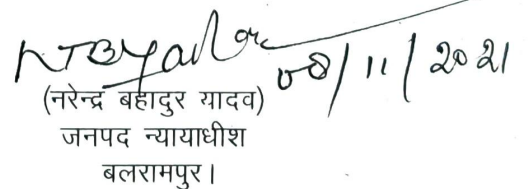 NTBYadav 08/11/2021
(नरेन्द्र बहादुर यादव)
जनपद न्यायाधीश
बलरामपुर।